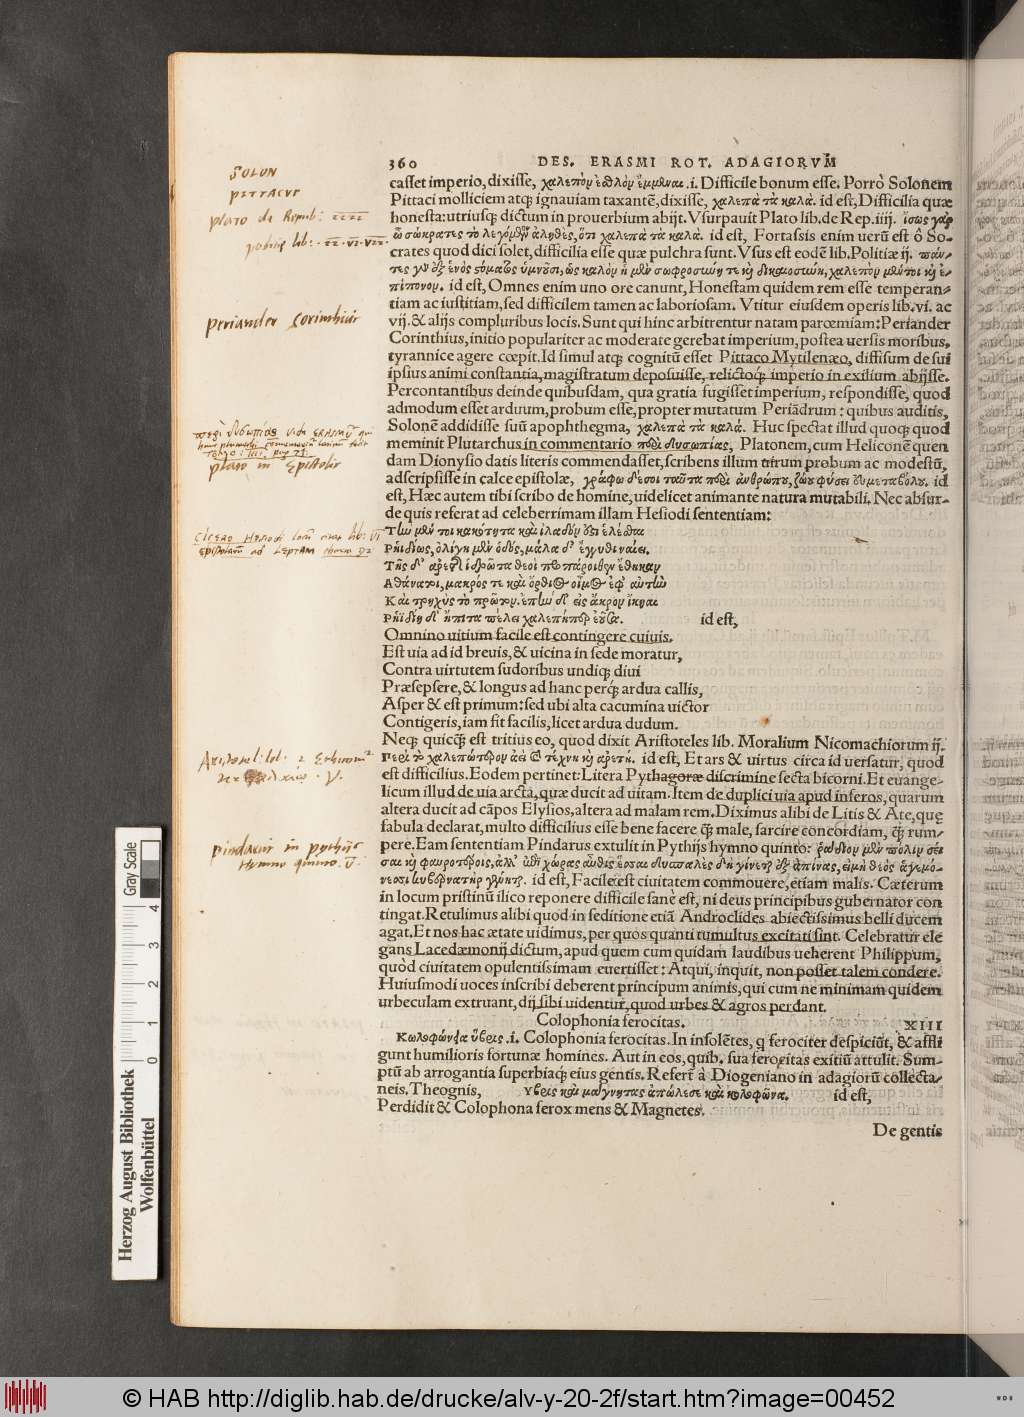 360 DES. ERASMI ROT. ADAGIORVM
SOLON
PITTACVS
plato de Repub:
Periander Corinthius
plato in Epistolis
pindarus in pythijs
hymno quinto. V.
casset imperio, dixisse, χαλεπὸν ἐσθλὸν ἔμμεναι .i. Difficile bonum esse. Porrò Solonem
Pittaci molliciem atq; ignauiam taxantẽ, dixisse, χαλεπὰ τὰ καλά. id est, Difficilia quæ
honesta: utriusq; dictum in prouerbium abijt. Vsurpauit Plato lib. de Rep. iiij. ἴσως γὰρ
ὦ σώκρατες τὸ λεγόμενον ἀληθὲς, ὅτι χαλεπὰ τὰ καλά. id est, Fortassis enim uerũ est ô So-
crates quod dici solet, difficilia esse quæ pulchra sunt. Vsus est eodẽ lib. Politiæ ij. πάν-
τες γὰρ ἐξ ἑνὸς στόματος ὑμνοῦσι, ὡς καλὸν ἡ μὲν σωφροσύνη τε καὶ δικαιοσύνη, χαλεπὸν μέντοι καὶ ἐ-
πίπονον. id est, Omnes enim uno ore canunt, Honestam quidem rem esse temperan-
tiam ac iustitiam, sed difficilem tamen ac laboriosam. Vtitur eiusdem operis lib. vi. ac
vij. & alijs compluribus locis. Sunt qui hinc arbitrentur natam parœmiam: Periander
Corinthius, initio populariter ac moderate gerebat imperium, postea uersis moribus,
tyrannice agere cœpit. Id simul atq; cognitũ esset Pittaco Mytilenæo, diffisum de sui
ipsius animi constantia, magistratum deposuisse, relictoq́; imperio in exilium abijsse.
Percontantibus deinde quibusdam, qua gratia fugisset imperium, respondisse, quod
admodum esset arduum, probum esse, propter mutatum Periãdrum: quibus auditis,
Solonẽ addidisse suũ apophthegma, χαλεπὰ τὰ καλά. Huc spectat illud quoq; quod
meminit Plutarchus in commentario περὶ δυσωπίας, Platonem, cum Heliconẽ quen
dam Dionysio datis literis commendasset, scribens illum uirum probum ac modestũ,
adscripsisse in calce epistolæ, γράφω δέ σοι ταῦτα περὶ ἀνθρώπου, ζώου φύσει εὐμεταβόλου. id
est, Hæc autem tibi scribo de homine, uidelicet animante natura mutabili. Nec absur-
de quis referat ad celeberrimam illam Hesiodi sententiam:
Τὴν μὲν τοι κακότητα καὶ ἰλαδὸν ἔστιν ἑλέσθαι
Ῥηϊδίως, ὀλίγη μὲν ὁδὸς, μάλα δ' ἐγγύθι ναίει.
Τῆς δ' ἀρετῆς ἱδρῶτα θεοὶ προπάροιθεν ἔθηκαν
Ἀθάνατοι, μακρός τε καὶ ὄρθιος οἶμος ἐφ' αὐτὴν
Καὶ τρηχὺς τὸ πρῶτον. ἐπὴν δ' εἰς ἄκρον ἵκηαι
Ῥηϊδίη δ' ἤπειτα πέλει χαλεπή περ ἐοῦσα. id est,
Omnino uitium facile est contingere cuiuis.
Est uia ad id breuis, & uicina in sede moratur,
Contra uirtutem sudoribus undiq; diui
Præsepsere, & longus ad hanc perq́; ardua callis,
Asper & est primum: sed ubi alta cacumina uictor
Contigeris, iam fit facilis, licet ardua dudum.
Neq; quicq̃ est tritius eo, quod dixit Aristoteles lib. Moralium Nicomachiorum ij.
Περὶ τὸ χαλεπώτερον ἀεὶ καὶ τέχνη καὶ ἀρετή. id est, Et ars & uirtus circa id uersatur, quod
est difficilius. Eodem pertinet: Litera Pythagoræ discrimine secta bicorni. Et euange-
licum illud de uia arcta, quæ ducit ad uitam. Item de duplici uia apud inferos, quarum
altera ducit ad cãpos Elysios, altera ad malam rem. Diximus alibi de Litis & Ate, quę
fabula declarat, multo difficilius esse bene facere q̃ male, sarcire concordiam, q̃ rum-
pere. Eam sententiam Pindarus extulit in Pythijs hymno quinto: ῥᾴδιον μὲν πόλιν σεῖ
σαι καὶ ἀφαυροτέροις, ἀλλ' ἐπὶ χώρας αὖθις ἕσσαι δυσπαλὲς δὴ γίνεται ἐξ ἀπίνας, εἰ μὴ θεὸς ἁγεμό-
νεσσι κυβερνατὴρ γένηται. id est, Facile est ciuitatem commouere, etiam malis. Cæterum
in locum pristinũ ilico reponere difficile sanè est, ni deus principibus gubernator con
tingat. Retulimus alibi quod in seditione etiã Androclides abiectissimus belli ducem
agat. Et nos hac ætate uidimus, per quos quanti tumultus excitati sint. Celebratur ele
gans Lacedæmonij dictum, apud quem cum quidam laudibus ueherent Philippum,
quòd ciuitatem opulentissimam euertisset: Atqui, inquit, non posset talem condere.
Huiusmodi uoces inscribi deberent principum animis, qui cum ne minimam quidem
urbeculam extruant, dij sibi uidentur, quod urbes & agros perdant.
Colophonia ferocitas. XIII
Κολοφώνεια ὕβρις .i. Colophonia ferocitas. In insolẽtes, q ferociter despiciũt, & affli
gunt humilioris fortunæ homines. Aut in eos, quib. sua ferocitas exitiũ attulit. Sum-
ptũ ab arrogantia superbiaq; eius gentis. Refert̃ à Diogeniano in adagiorũ collecta-
neis. Theognis, ὕβρις καὶ μάγνητας ἀπώλεσε καὶ κολοφῶνα. id est,
Perdidit & Colophona ferox mens & Magnetes.
De gentis
Herzog August Bibliothek
Wolfenbüttel
0 1 2 3 4 Gray Scale
© HAB http://diglib.hab.de/drucke/alv-y-20-2f/start.htm?image=00452